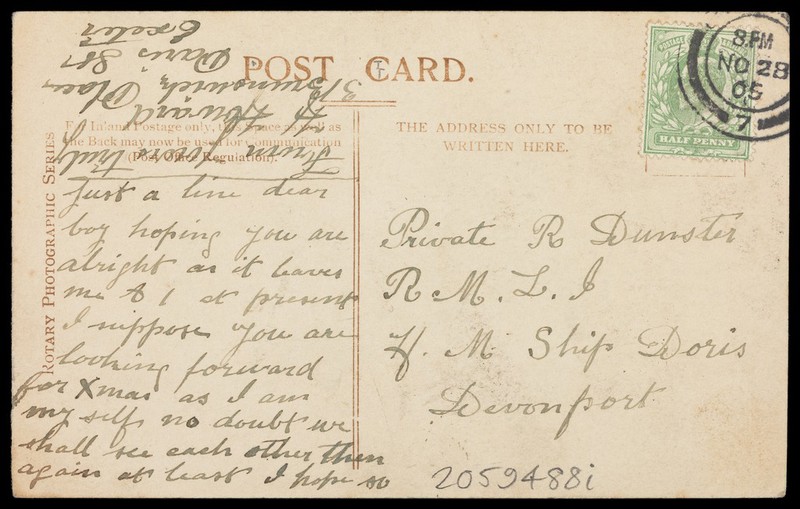 POST CARD.
For Inland Postage only, this Space as well as
the Back may now be used for Communication
(Post Office Regulation).
THE ADDRESS ONLY TO BE
WRITTEN HERE.
ROTARY PHOTOGRAPHIC SERIES
HALF PENNY
8.PM
NO 28
05
7
Just a line dear
boy hoping you are
alright as it leaves
me A 1 at present
I suppose you are
looking forward
for Xmas as I am
my self no doubt we
shall see each other then
again at least I hope so
From yours truly
A Howard
3 Place
Paris Str
Exeter
Private R Dunster
R M. L. I
H. M Ship Doris
Devonport
2059488i